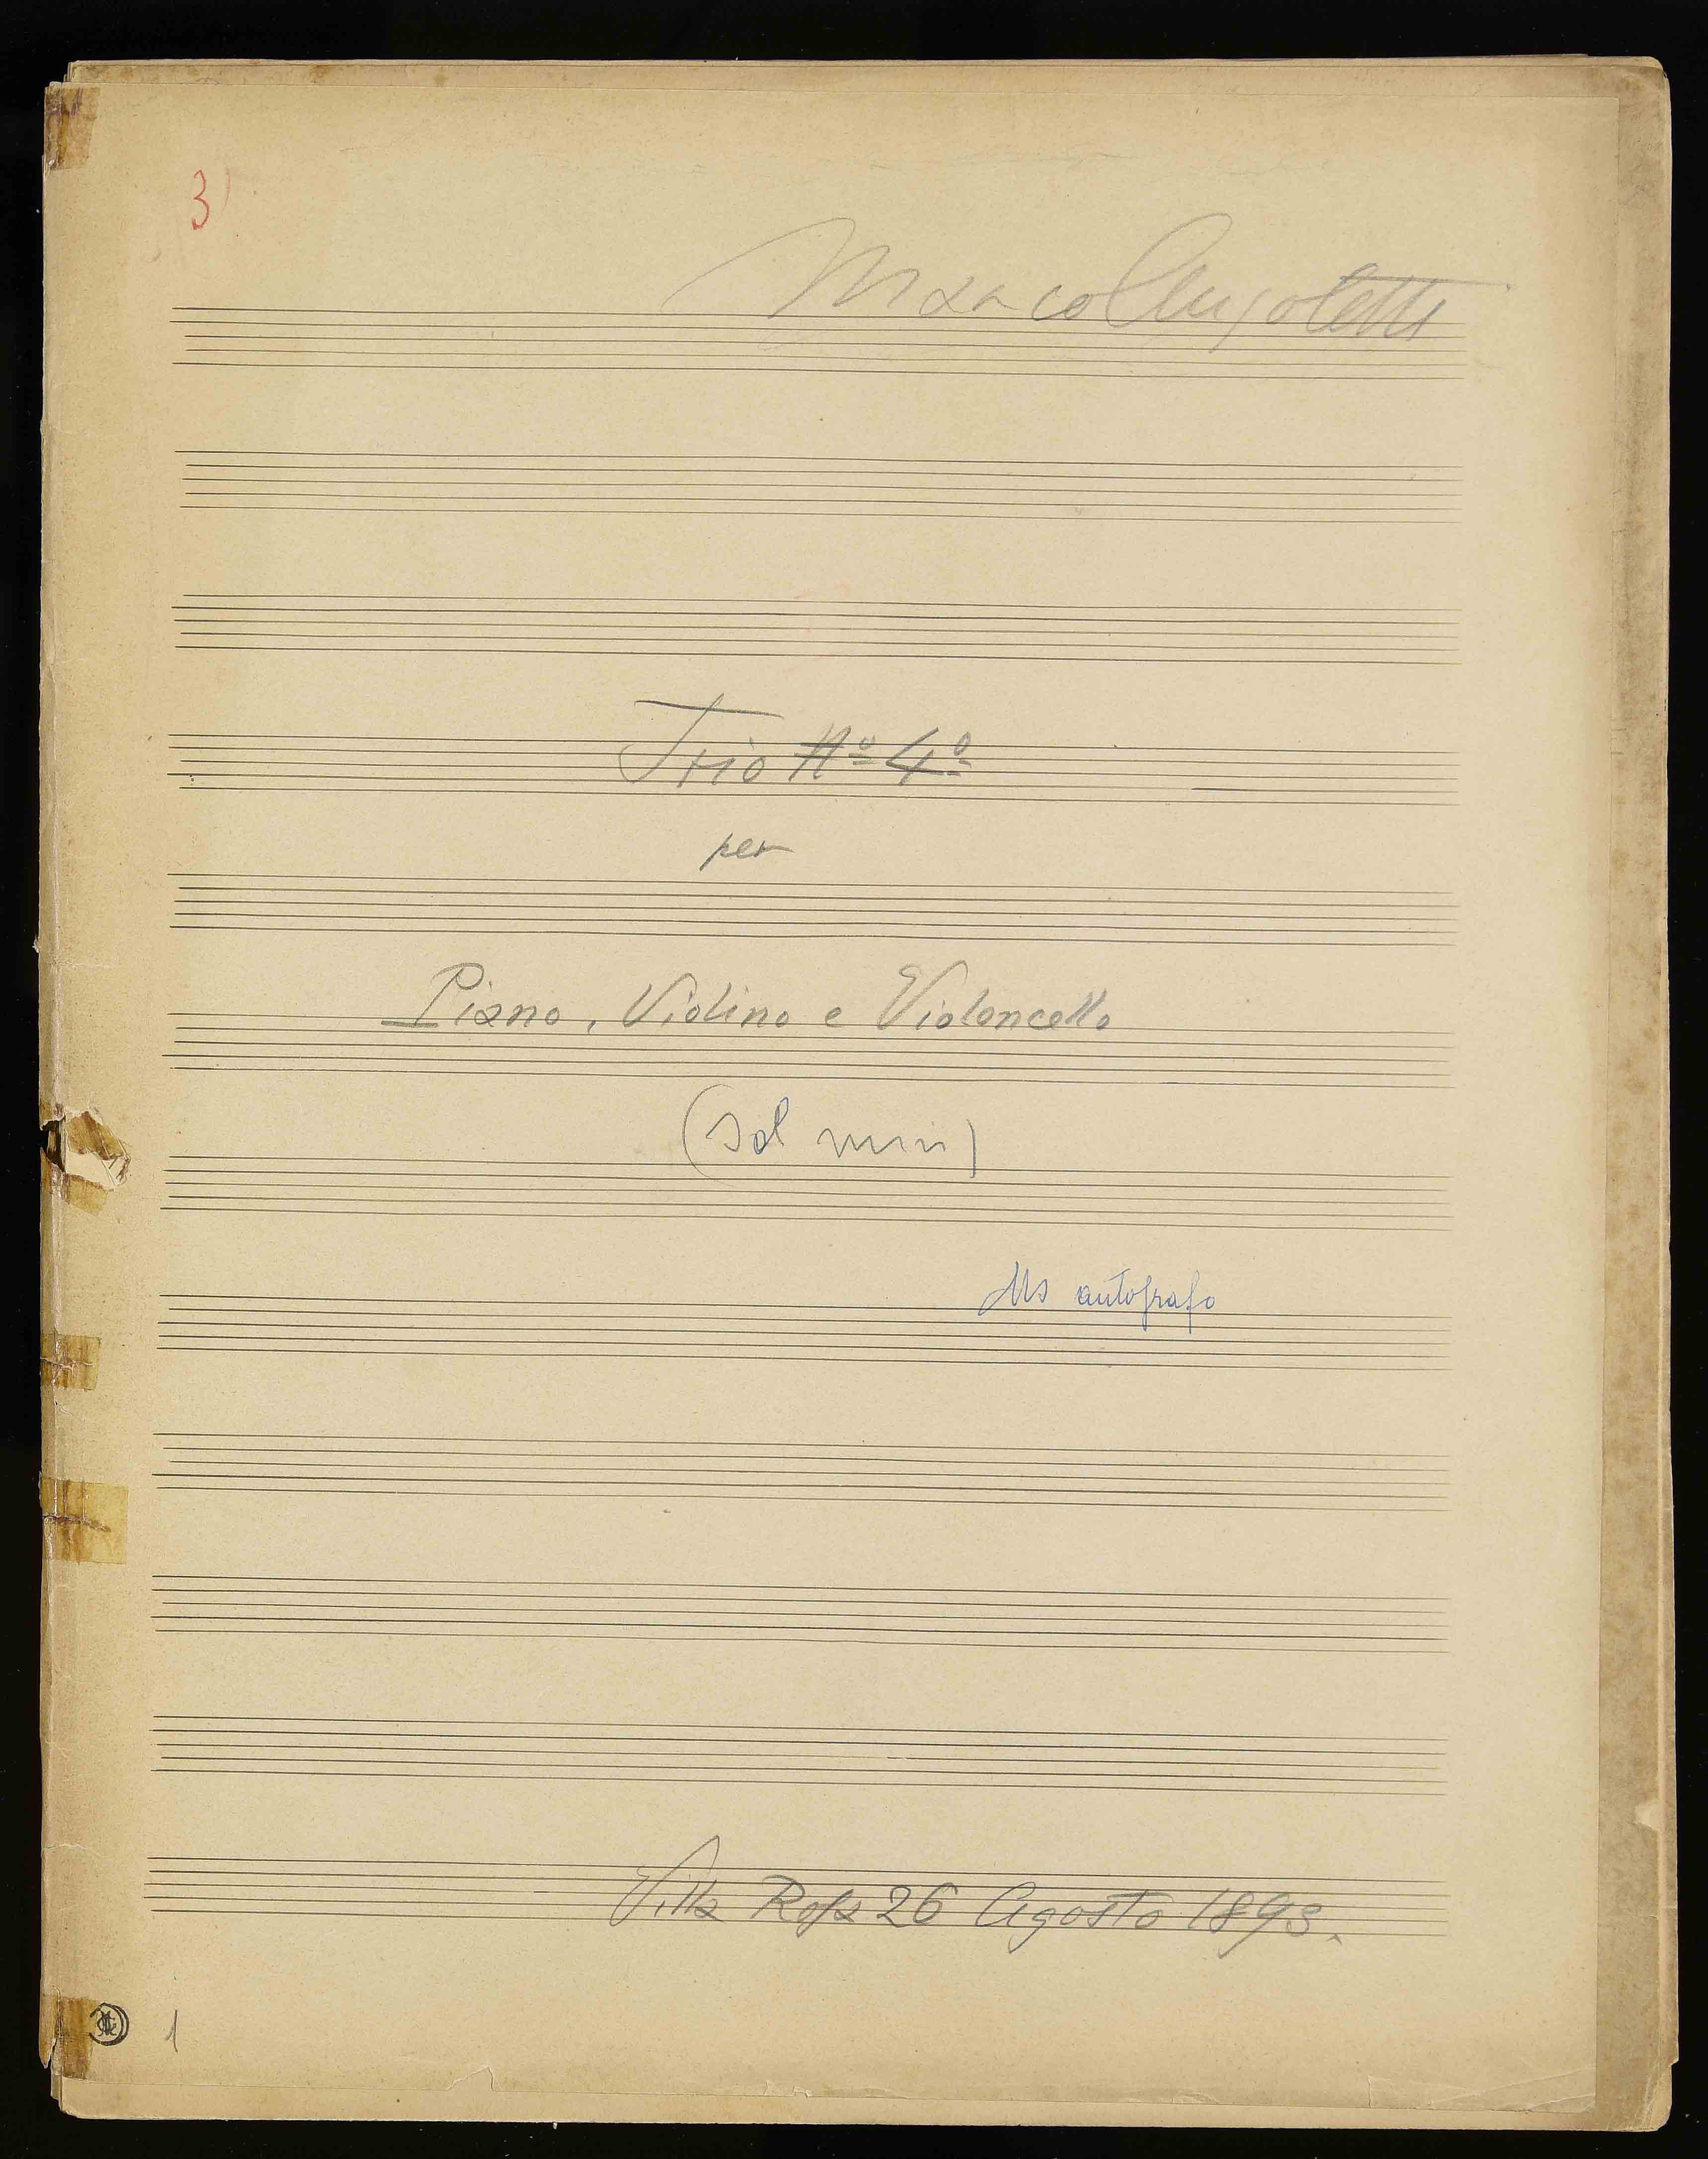 3)
Marco Anzoletti
Trio Nº 4º
per
Piano, Violino e Violoncello
(Sol min)
Ms autografo
Villa Rosa 26 Agosto 1893.
1